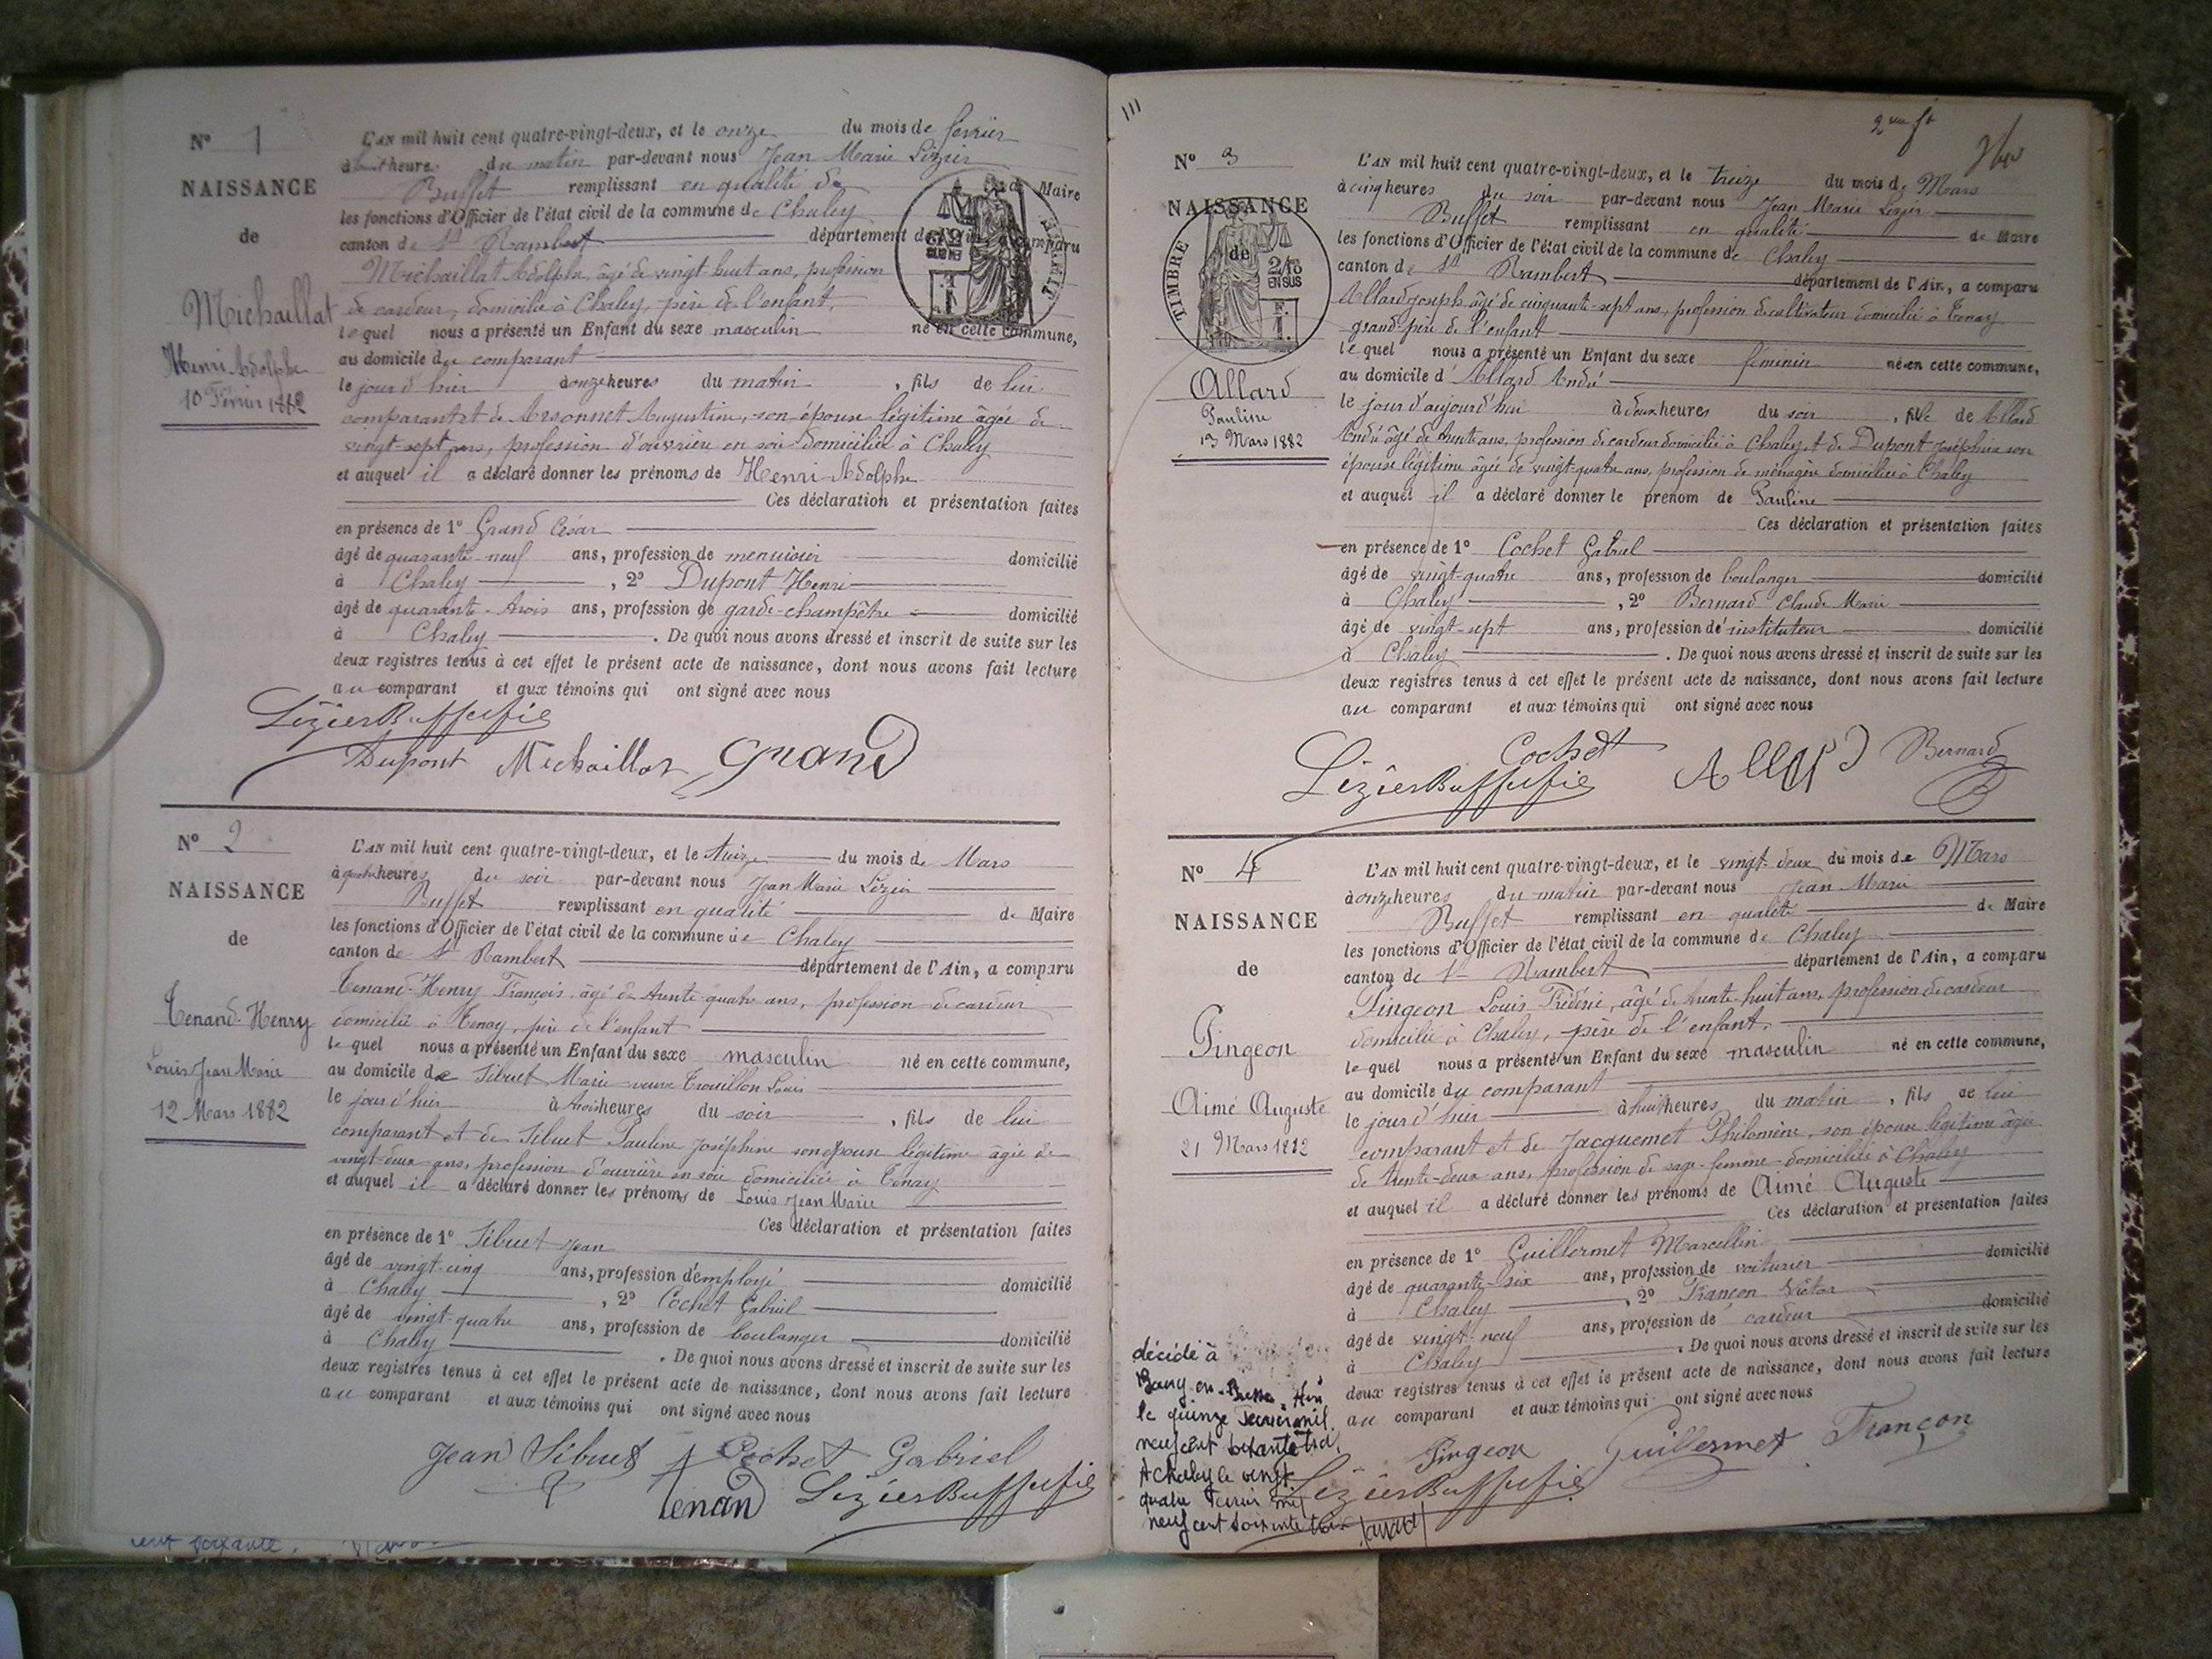 N° 1
NAISSANCE
de
Michaillat
Henri Adolphe
10 Février 1882
L'AN mil huit cent quatre-vingt-deux, et le onze du mois de février
à huit heures du matin par-devant nous Jean Marie Lézier
Buffet remplissant en qualité de Maire
les fonctions d'Officier de l'état civil de la commune de Chaley
canton de St Rambert département de l'Ain, a comparu
Michaillat Adolphe, âgé de vingt huit ans, profession
de cardeur, domicilié à Chaley, père de l'enfant,
lequel nous a présenté un Enfant du sexe masculin né en cette commune,
au domicile du comparant
le jour d'hier à onze heures du matin, fils de lui
comparant et de Arsonnet Augustine, son épouse légitime âgée de
vingt-sept ans, profession d'ouvrière en soie domiciliée à Chaley
et auquel il a déclaré donner les prénoms de Henri Adolphe
Ces déclaration et présentation faites
en présence de 1° Grand César
âgé de quarante neuf ans, profession de menuisier domicilié
à Chaley, 2° Dupont Henri
âgé de quarante-trois ans, profession de garde-champêtre domicilié
à Chaley. De quoi nous avons dressé et inscrit de suite sur les
deux registres tenus à cet effet le présent acte de naissance, dont nous avons fait lecture
au comparant et aux témoins qui ont signé avec nous
Lézier Buffet fils
Dupont Michaillat Grand
N° 2
NAISSANCE
de
Tenand-Henry
Louis Jean Marie
12 Mars 1882
L'AN mil huit cent quatre-vingt-deux, et le treize du mois de Mars
à quatre heures du soir par-devant nous Jean Marie Lézier
Buffet remplissant en qualité de Maire
les fonctions d'Officier de l'état civil de la commune de Chaley
canton de St Rambert département de l'Ain, a comparu
Tenand-Henry François, âgé de trente quatre ans, profession de cardeur
domicilié à Tenay, père de l'enfant
lequel nous a présenté un Enfant du sexe masculin né en cette commune,
au domicile de Sibuet Marie veuve Trouillon Louis
le jour d'hier à trois heures du soir, fils de lui
comparant et de Sibuet Pauline Joséphine son épouse légitime âgée de
vingt-deux ans, profession d'ouvrière en soie domiciliée à Tenay
et auquel il a déclaré donner les prénoms de Louis Jean Marie
Ces déclaration et présentation faites
en présence de 1° Sibuet Jean
âgé de vingt-cinq ans, profession d'employé domicilié
à Chaley, 2° Cochet Gabriel
âgé de vingt-quatre ans, profession de boulanger domicilié
à Chaley. De quoi nous avons dressé et inscrit de suite sur les
deux registres tenus à cet effet le présent acte de naissance, dont nous avons fait lecture
au comparant et aux témoins qui ont signé avec nous
Jean Sibuet Cochet Gabriel
Tenand Lézier Buffet fils
cent soixante.
111
N° 3
NAISSANCE
de
TIMBRE
2/10
EN SUS
Allard
Pauline
13 Mars 1882
L'AN mil huit cent quatre-vingt-deux, et le treize du mois de Mars
à cinq heures du soir par-devant nous Jean Marie Lézier
Buffet remplissant en qualité de Maire
les fonctions d'Officier de l'état civil de la commune de Chaley
canton de St Rambert département de l'Ain, a comparu
Allard Joseph âgé de cinquante-sept ans, profession de cultivateur domicilié à Tenay
grand père de l'enfant
lequel nous a présenté un Enfant du sexe féminin né en cette commune,
au domicile d'Allard André
le jour d'aujourd'hui à deux heures du soir, fille de Allard
André âgé de trente ans, profession de cardeur domicilié à Chaley et de Dupont Joséphine son
épouse légitime âgée de vingt-quatre ans, profession de ménagère domiciliée à Chaley
et auquel il a déclaré donner le prénom de Pauline
Ces déclaration et présentation faites
en présence de 1° Cochet Gabriel
âgé de vingt-quatre ans, profession de boulanger domicilié
à Chaley, 2° Bernard Claude Marie
âgé de vingt-sept ans, profession d'instituteur domicilié
à Chaley. De quoi nous avons dressé et inscrit de suite sur les
deux registres tenus à cet effet le présent acte de naissance, dont nous avons fait lecture
au comparant et aux témoins qui ont signé avec nous
Cochet Allard Bernard
Lézier Buffet fils
N° 4
NAISSANCE
de
Pingeon
Aimé Auguste
21 Mars 1882
L'AN mil huit cent quatre-vingt-deux, et le vingt-deux du mois de Mars
à onze heures du matin par-devant nous Jean Marie
Buffet remplissant en qualité de Maire
les fonctions d'Officier de l'état civil de la commune de Chaley
canton de St Rambert département de l'Ain, a comparu
Pingeon Louis Frédéric, âgé de trente-huit ans, profession de cardeur
domicilié à Chaley, père de l'enfant,
lequel nous a présenté un Enfant du sexe masculin né en cette commune,
au domicile du comparant
le jour d'hier à huit heures du matin, fils de lui
comparant et de Jacquemet Philomène, son épouse légitime âgée
de trente-deux ans, profession de sage-femme domiciliée à Chaley
et auquel il a déclaré donner les prénoms de Aimé Auguste
Ces déclaration et présentation faites
en présence de 1° Guillermet Marcellin
âgé de quarante-six ans, profession de voiturier domicilié
à Chaley, 2° Françon Victor
âgé de vingt-neuf ans, profession de cardeur domicilié
à Chaley. De quoi nous avons dressé et inscrit de suite sur les
deux registres tenus à cet effet le présent acte de naissance, dont nous avons fait lecture
au comparant et aux témoins qui ont signé avec nous
Pingeon Guillermet Françon
Lézier Buffet fils
décédé à
Bourg-en-Bresse, Ain
le quinze février mil
neuf cent soixante trois.
A Chaley le vingt
quatre février mil
neuf cent soixante trois